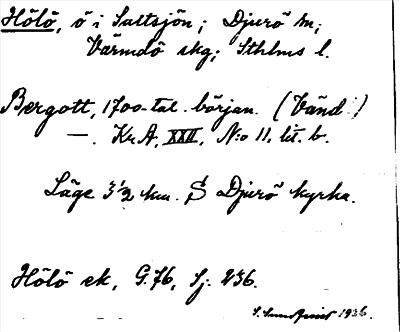 Hölö, ö i Saltsjön; Djurö sn;
Värmdö skg; Sthlms l.
Bergott, 1700-tal. början. (Vänd!)
—. Kr.A. XXII, N:o 11. lit. b.
Läge 3 1/2 km. S Djurö kyrka.
Hölö ek, G.76, Sj. 236.
S. Sundquist 1936.